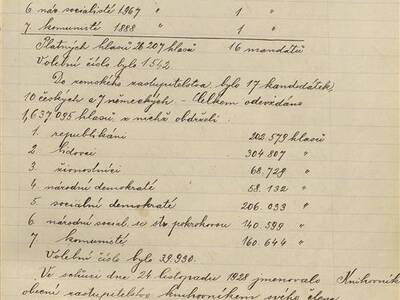 6 nár. socialisté 1967 " 1 "
7. komunisté 1888 " 1 "
Platných hlasů 26 207 hlasů 16 mandátů
Volební číslo bylo 1542
Do zemského zastupitelstva bylo 17 kandidátek,
10 českých a 7 německých - Celkem odevzdáno
1,637 095 hlasů z nichž obdrželi.
1. republikáni 202 579 hlasů
2. lidovci 304 807 "
3. živnostníci 68.729 "
4 národní demokraté 58.132 "
5. sociální demokraté 206.033 "
6 národní social. se str. pokrokovou 140.599 "
7 komunisté 160.644 "
Volební číslo bylo 39.930.
Ve schůzi dne 24 listopadu 1928 jmenovalo Knihovník
obecní zastupitelstvo knihovníkem svého člena